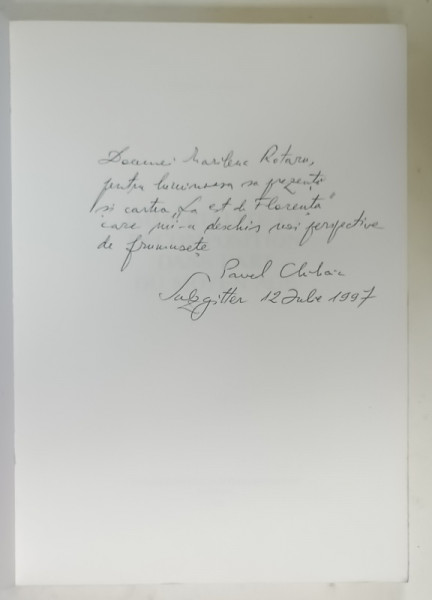 Doamnei Marilena Rotaru,
pentru luminoasa sa prezență
și cartea „La est de Florența"
care mi-a deschis noi perspective
de frumusețe
Pavel Chihaia
Salzgitter 12 Iulie 1997